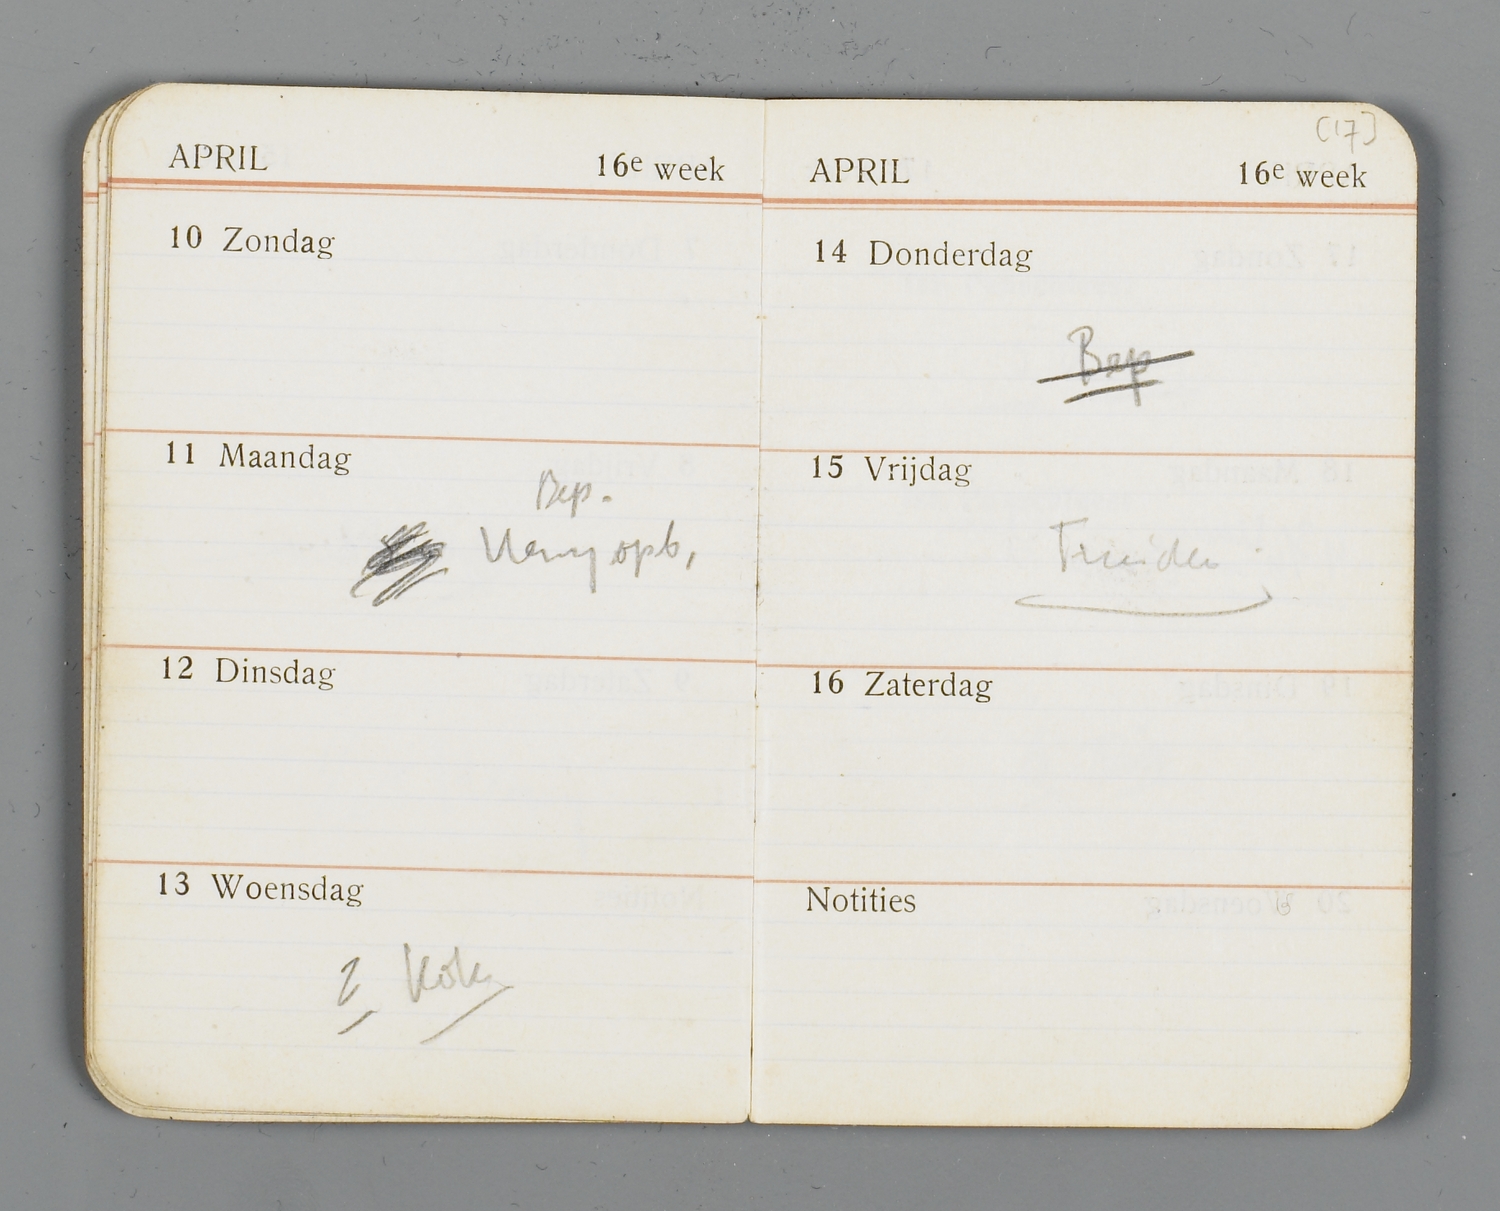 APRIL 16e week
10 Zondag
11 Maandag
Bep.
opb,
12 Dinsdag
13 Woensdag
2
[17]
APRIL 16e week
14 Donderdag
Bep
15 Vrijdag
16 Zaterdag
Notities